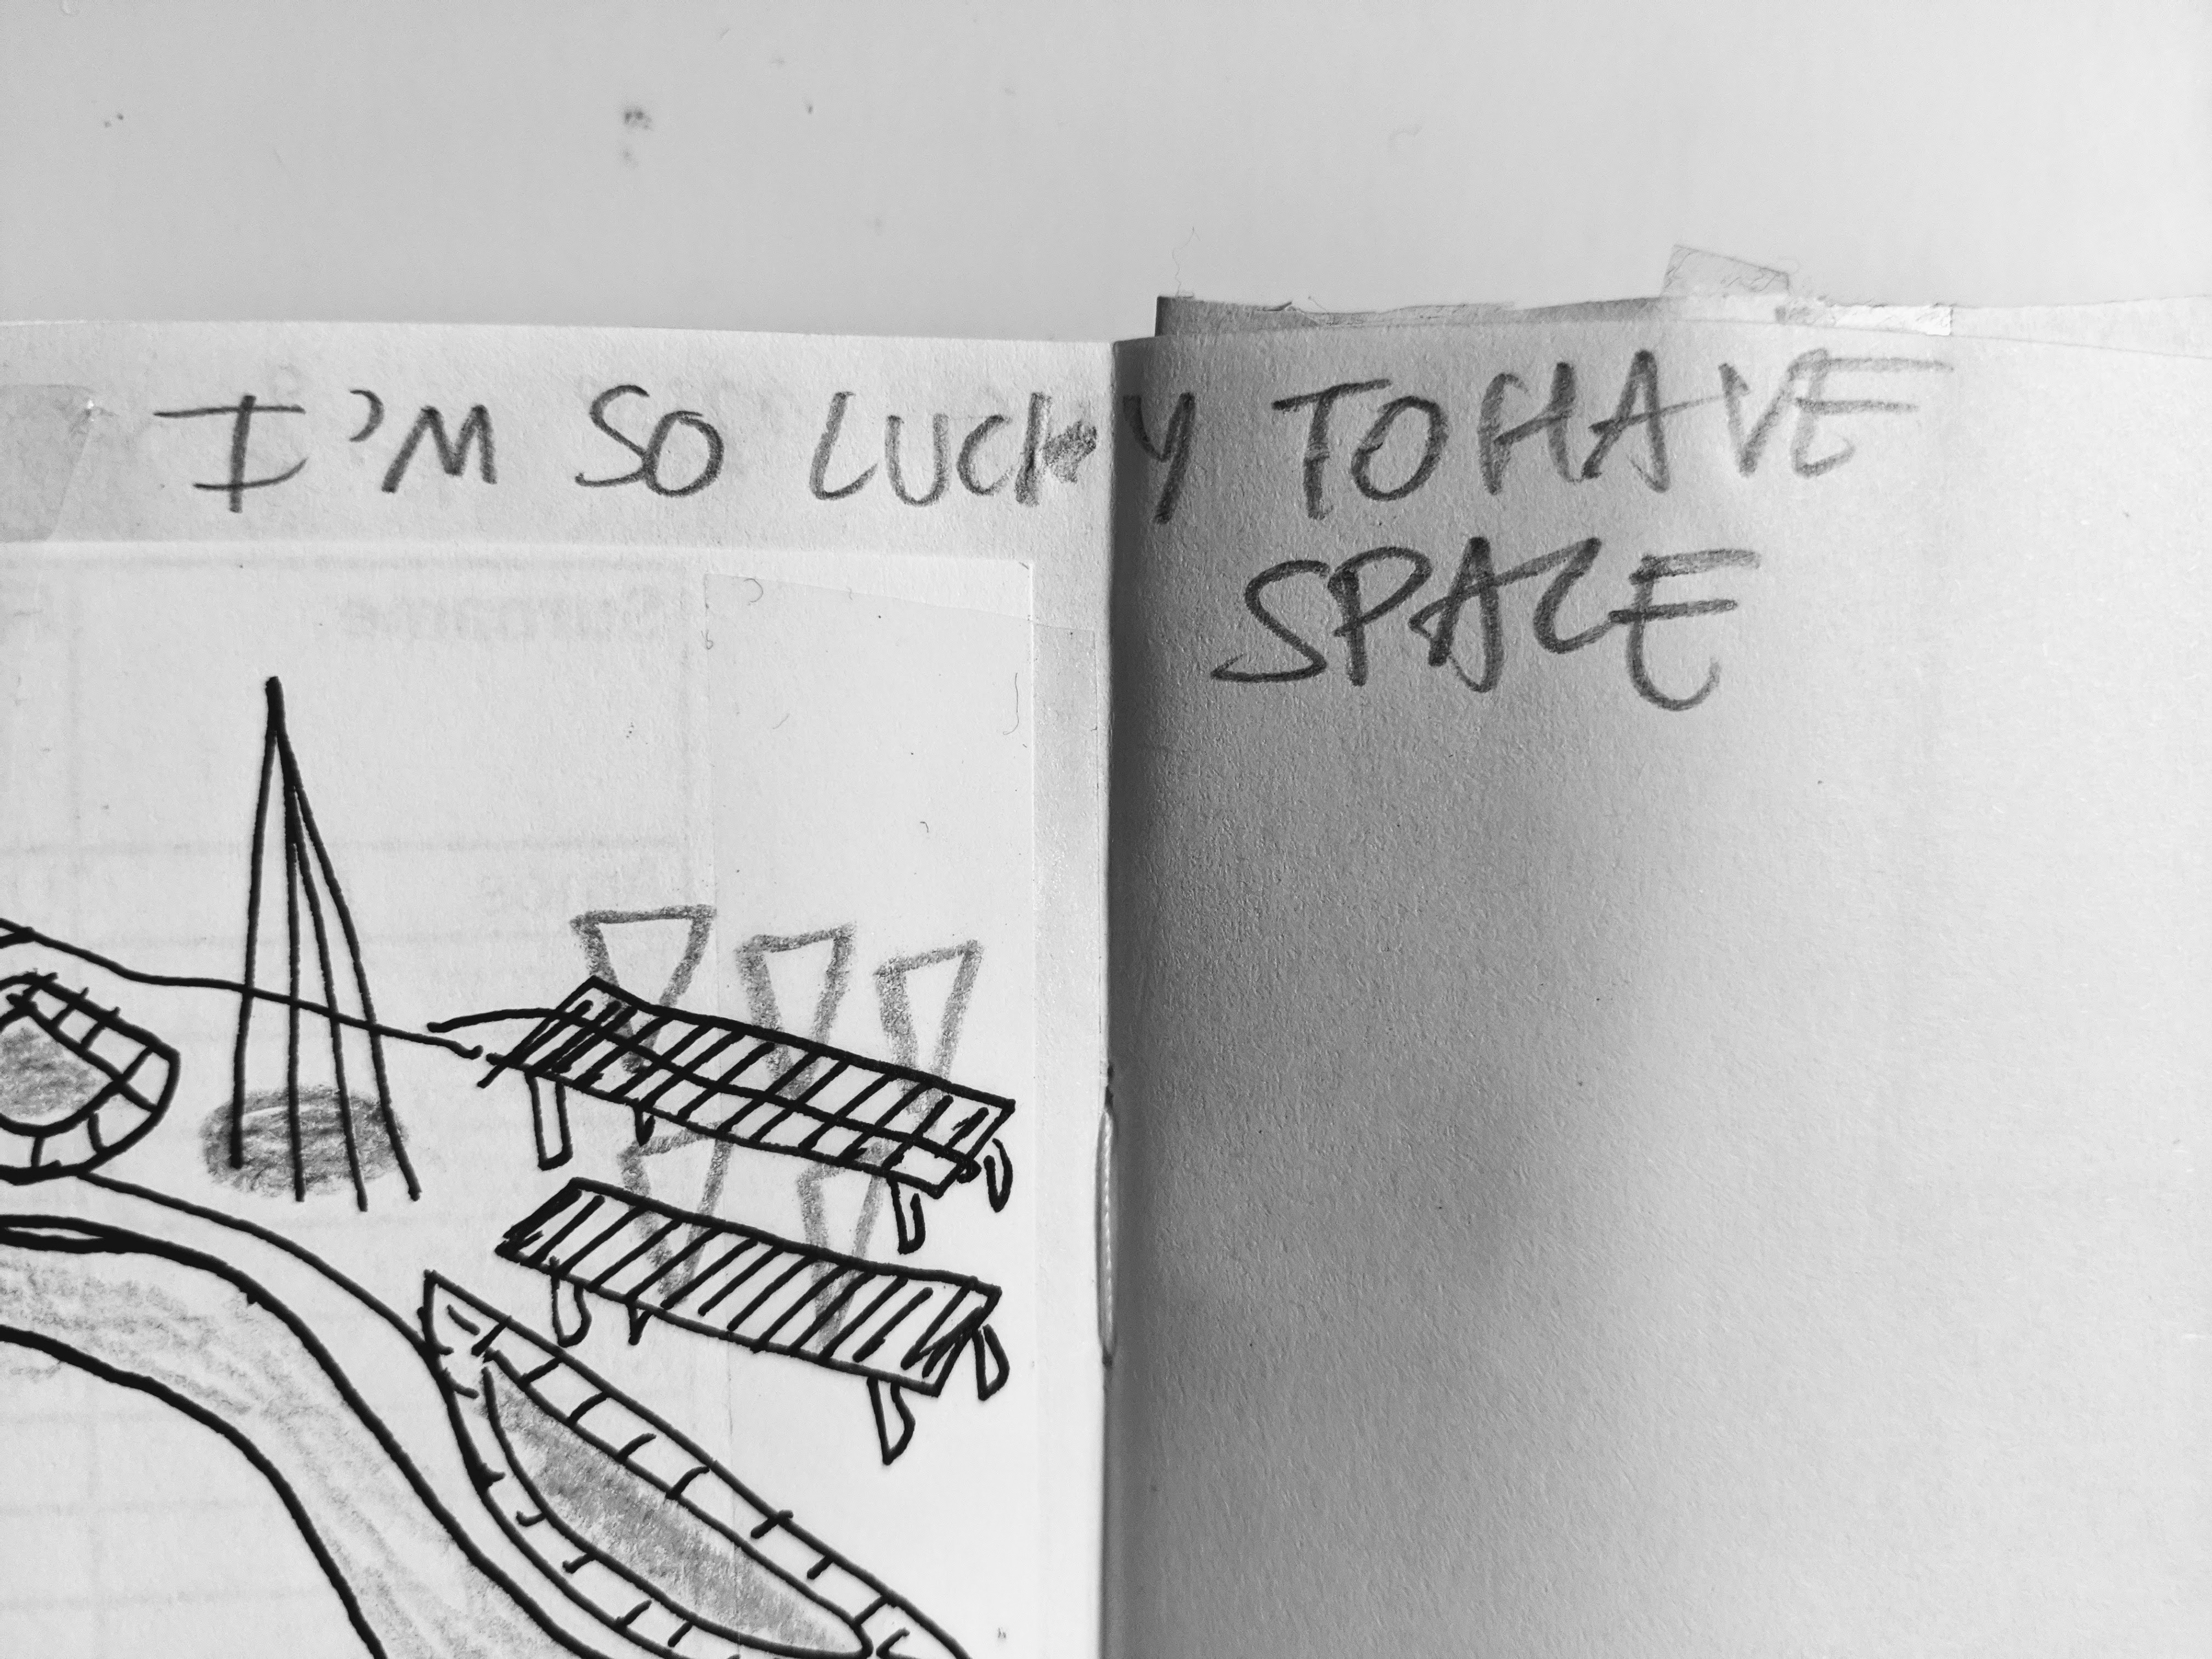 I'M SO LUCKY TO HAVE
SPACE
Surname